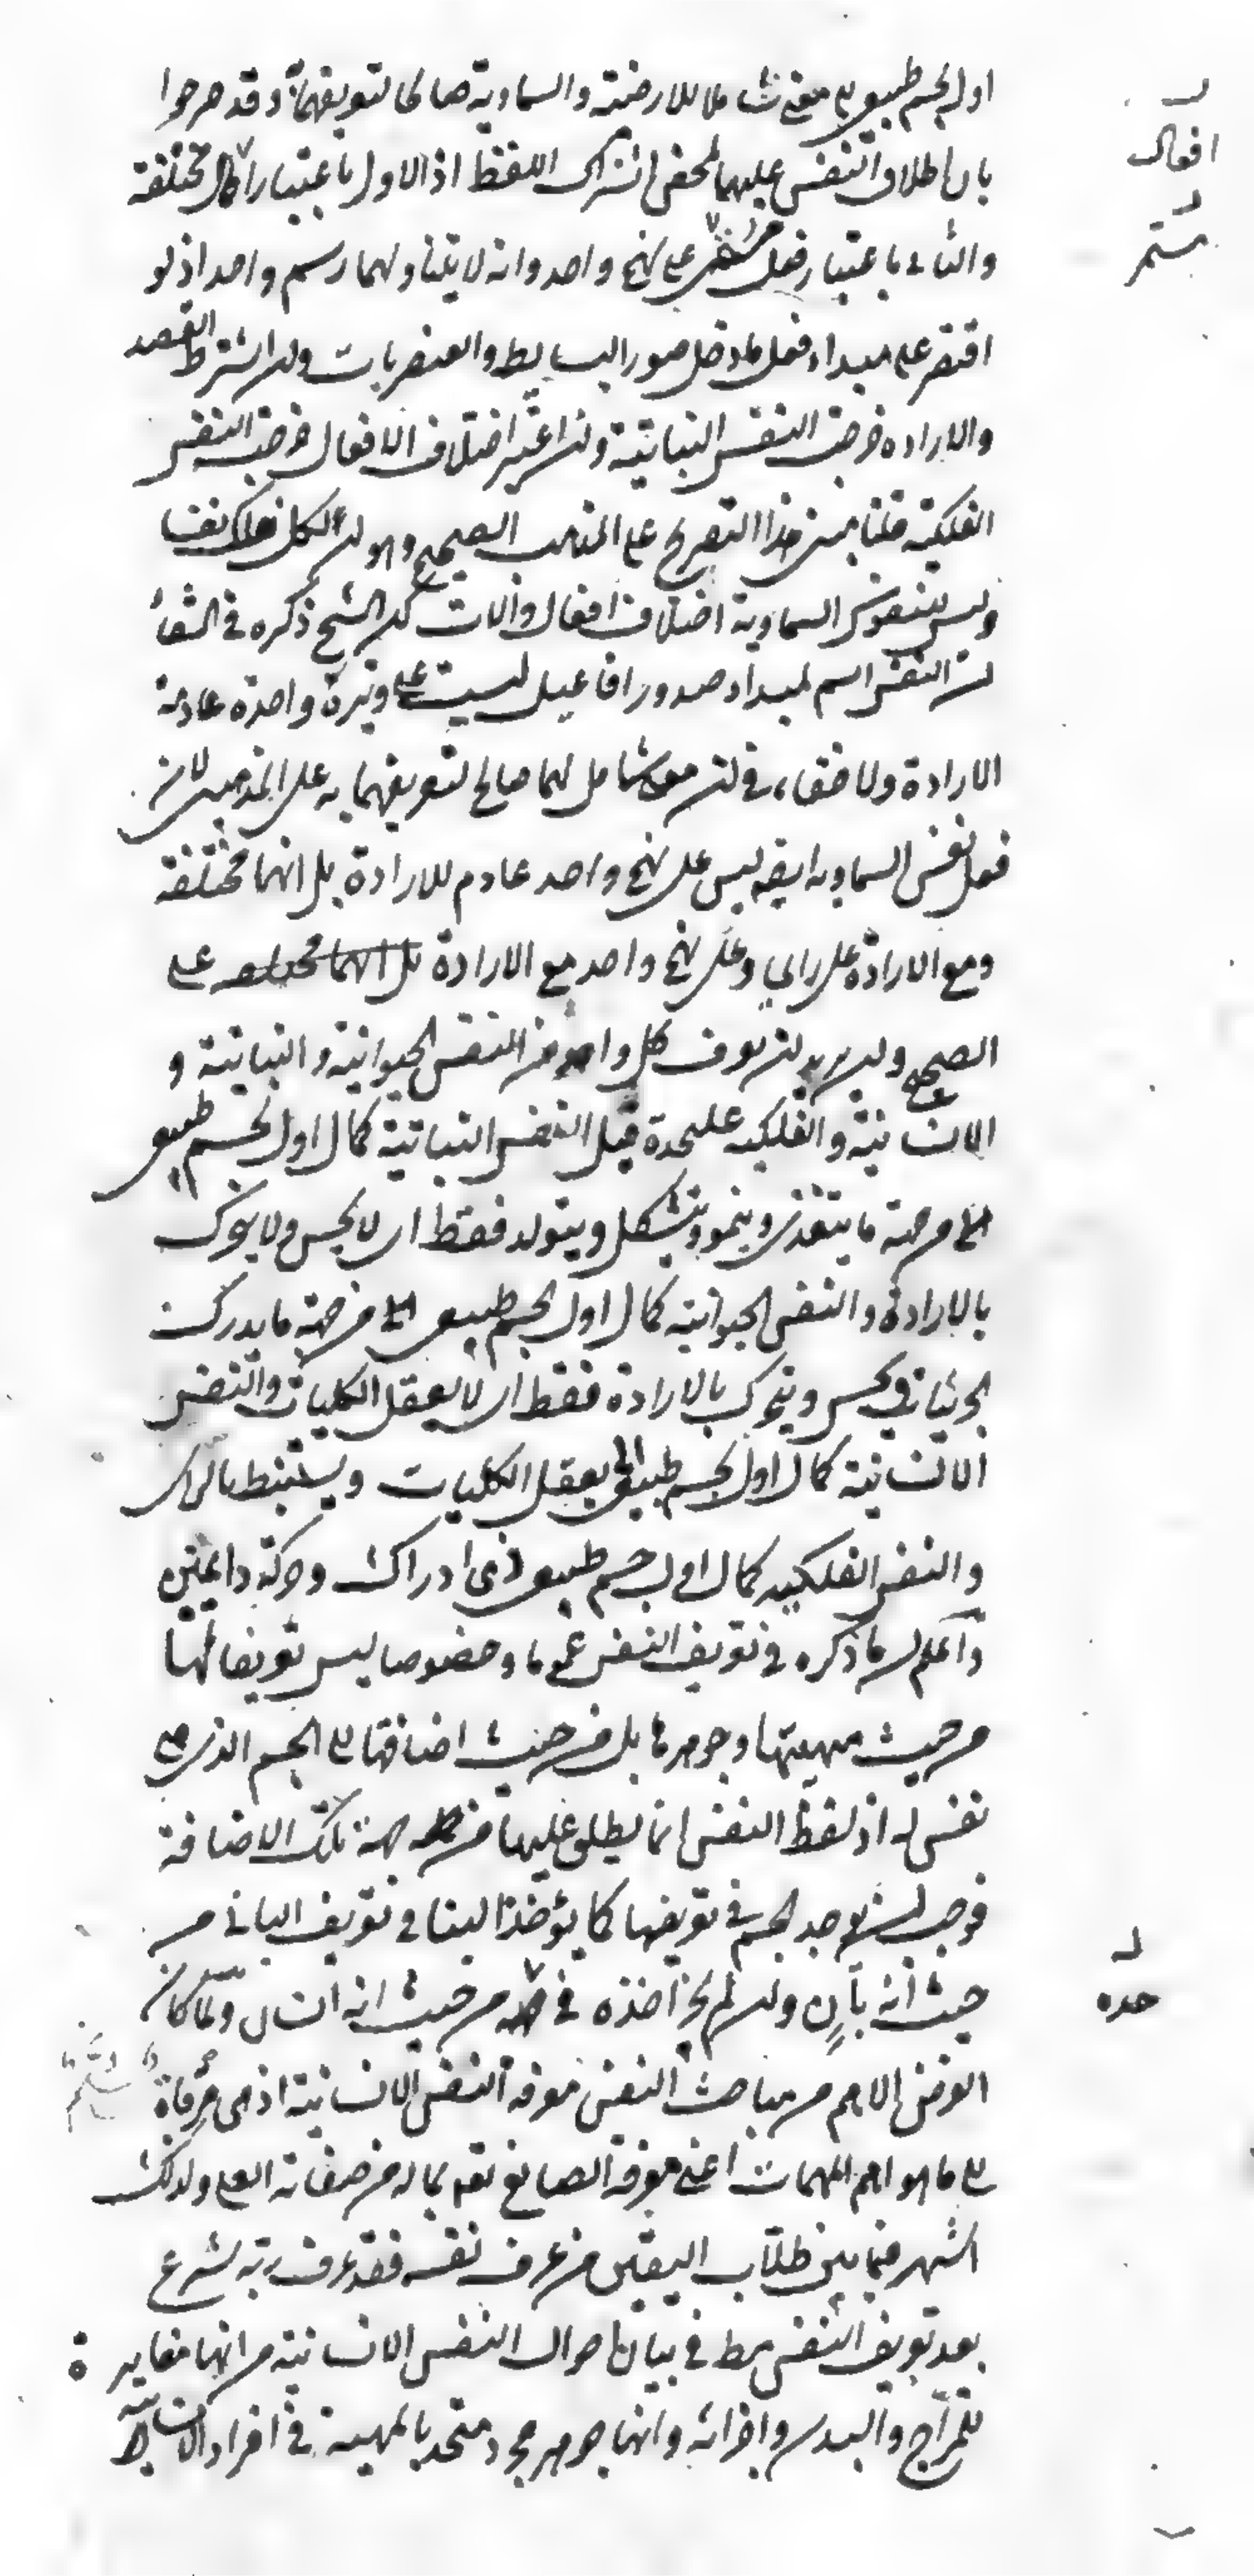 اول لجسم طبيعي معنى شاملا للارضية والسماوية صالحا لتعريفهما وقد صرحوا
بان اطلاق النفس عليهما لمحض اشتراك اللفظ اذ الاول باعتبار افعال مختلفة
والثاني باعتبار فعل مستمر على نهج واحد وانه لا يتناولهما رسم واحد اذ لو
اقتصر على مبداء فعل ما دخل صور البسايط والعنصريات وان اشترط القصد
والارادة خرجت النفس النباتية وان اعتبر اختلاف الافعال خرجت النفس
الفلكية قلنا مبنى هذا التصريح على المذهب الصحيح وهو ان لكل فلك نفسا
وليس للنفوس السماوية اختلاف افعال والات لكن الشيخ ذكره في الشفاء
ان النفس اسم لمبداء صدور افاعيل ليست على وتيرة واحدة عادمة
الارادة ولا خفاء في انه معنى شامل لهما صالح لتعريفهما به على المذهبين لان
فعل نفس السماوية ايضا ليس على نهج واحد عادم للارادة بل انها مختلفة
ومع الارادة على راى وعلى نهج واحد مع الارادة على
الصحيح وان اريد ان يعرف كل واحد من النفس الحيوانية والنباتية و
الانسانية والفلكية عليحدة قيل النفس النباتية كمال اول لجسم طبيعي
الى من جهة ما يتغذى وينمو ويتشكل ويتولد فقط اى لا يحس ولا يتحرك
بالارادة والنفس الحيوانية كمال اول لجسم طبيعي الى من جهة ما يدرك
الجزئيات ويحس ويتحرك بالارادة فقط اى لا يعقل الكليات والنفس
الانسانية كمال اول لجسم طبيعي الى يعقل الكليات ويستنبط بالراى
والنفس الفلكية كمال اول جسم طبيعي ذى ادراك وحركة دايمتين
واعلم ان ما ذكره في تعريف النفس عموما وخصوصا ليس تعريفا لها
من حيث مهيتها وجوهرها بل من حيث اضافتها الى الجسم الذى هى
نفس له اذ لفظ النفس انما يطلق عليها من جهة تلك الاضافة
فوجب ان يوجد الجسم في تعريفها كما يؤخذ البنا في تعريف البانى من
حيث انه بانٍ وان لم يجز اخذه في حده من حيث انه انسان ولما كان
الغرض الاهم من مباحث النفس معرفة النفس الانسانية اذ هى مرقاة
الى ما هو اهم المهمات اعنى معرفة الصانع تعه بما له من صفاته العلى ولذلك
اشتهر فيما بين طلاب اليقين من عرف نفسه فقد عرف ربه شرع
بعد تعريف النفس في بيان احوال النفس الانسانية من انها مغايرة
للمزاج والبدن واجزائه وانها جوهر مجرد متحد بالمهية في افراد الانسانية
افعال
مستمر
حده
سلم